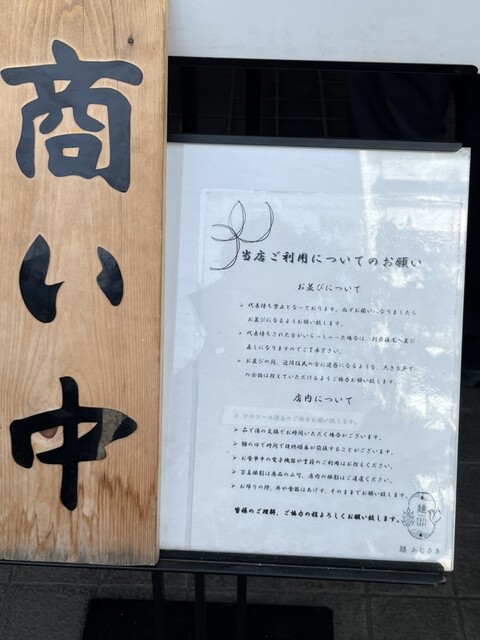 商い中
当店ご利用についてのお願い
お並びについて
➢ 代表待ち禁止となっております。必ずお揃いになりましたら
お並びになるようお願い致します。
➢ 代表待ちされた方がいらっしゃった場合は、列最後尾へ並び
直しになりますのでご了承下さい。
➢ お並びの間、近隣住民の方に迷惑になるような、大きな声で
の会話は控えていただけるようご協力お願い致します。
店内について
➢ アルコール消毒のご協力お願い致します。
➢ 品で湯の交換でお時間いただく場合がございます。
➢ 麺のゆで時間で提供順番が前後することがございます。
➢ お食事中の電子機器や書籍のご利用はお控えください。
➢ 写真撮影は商品のみ可、店内の撮影はご遠慮ください。
➢ お帰りの際、丼や食器はあげず、そのままでお願い致します。
皆様のご理解、ご協力の程よろしくお願い致します。
麺
麺 ふじさき